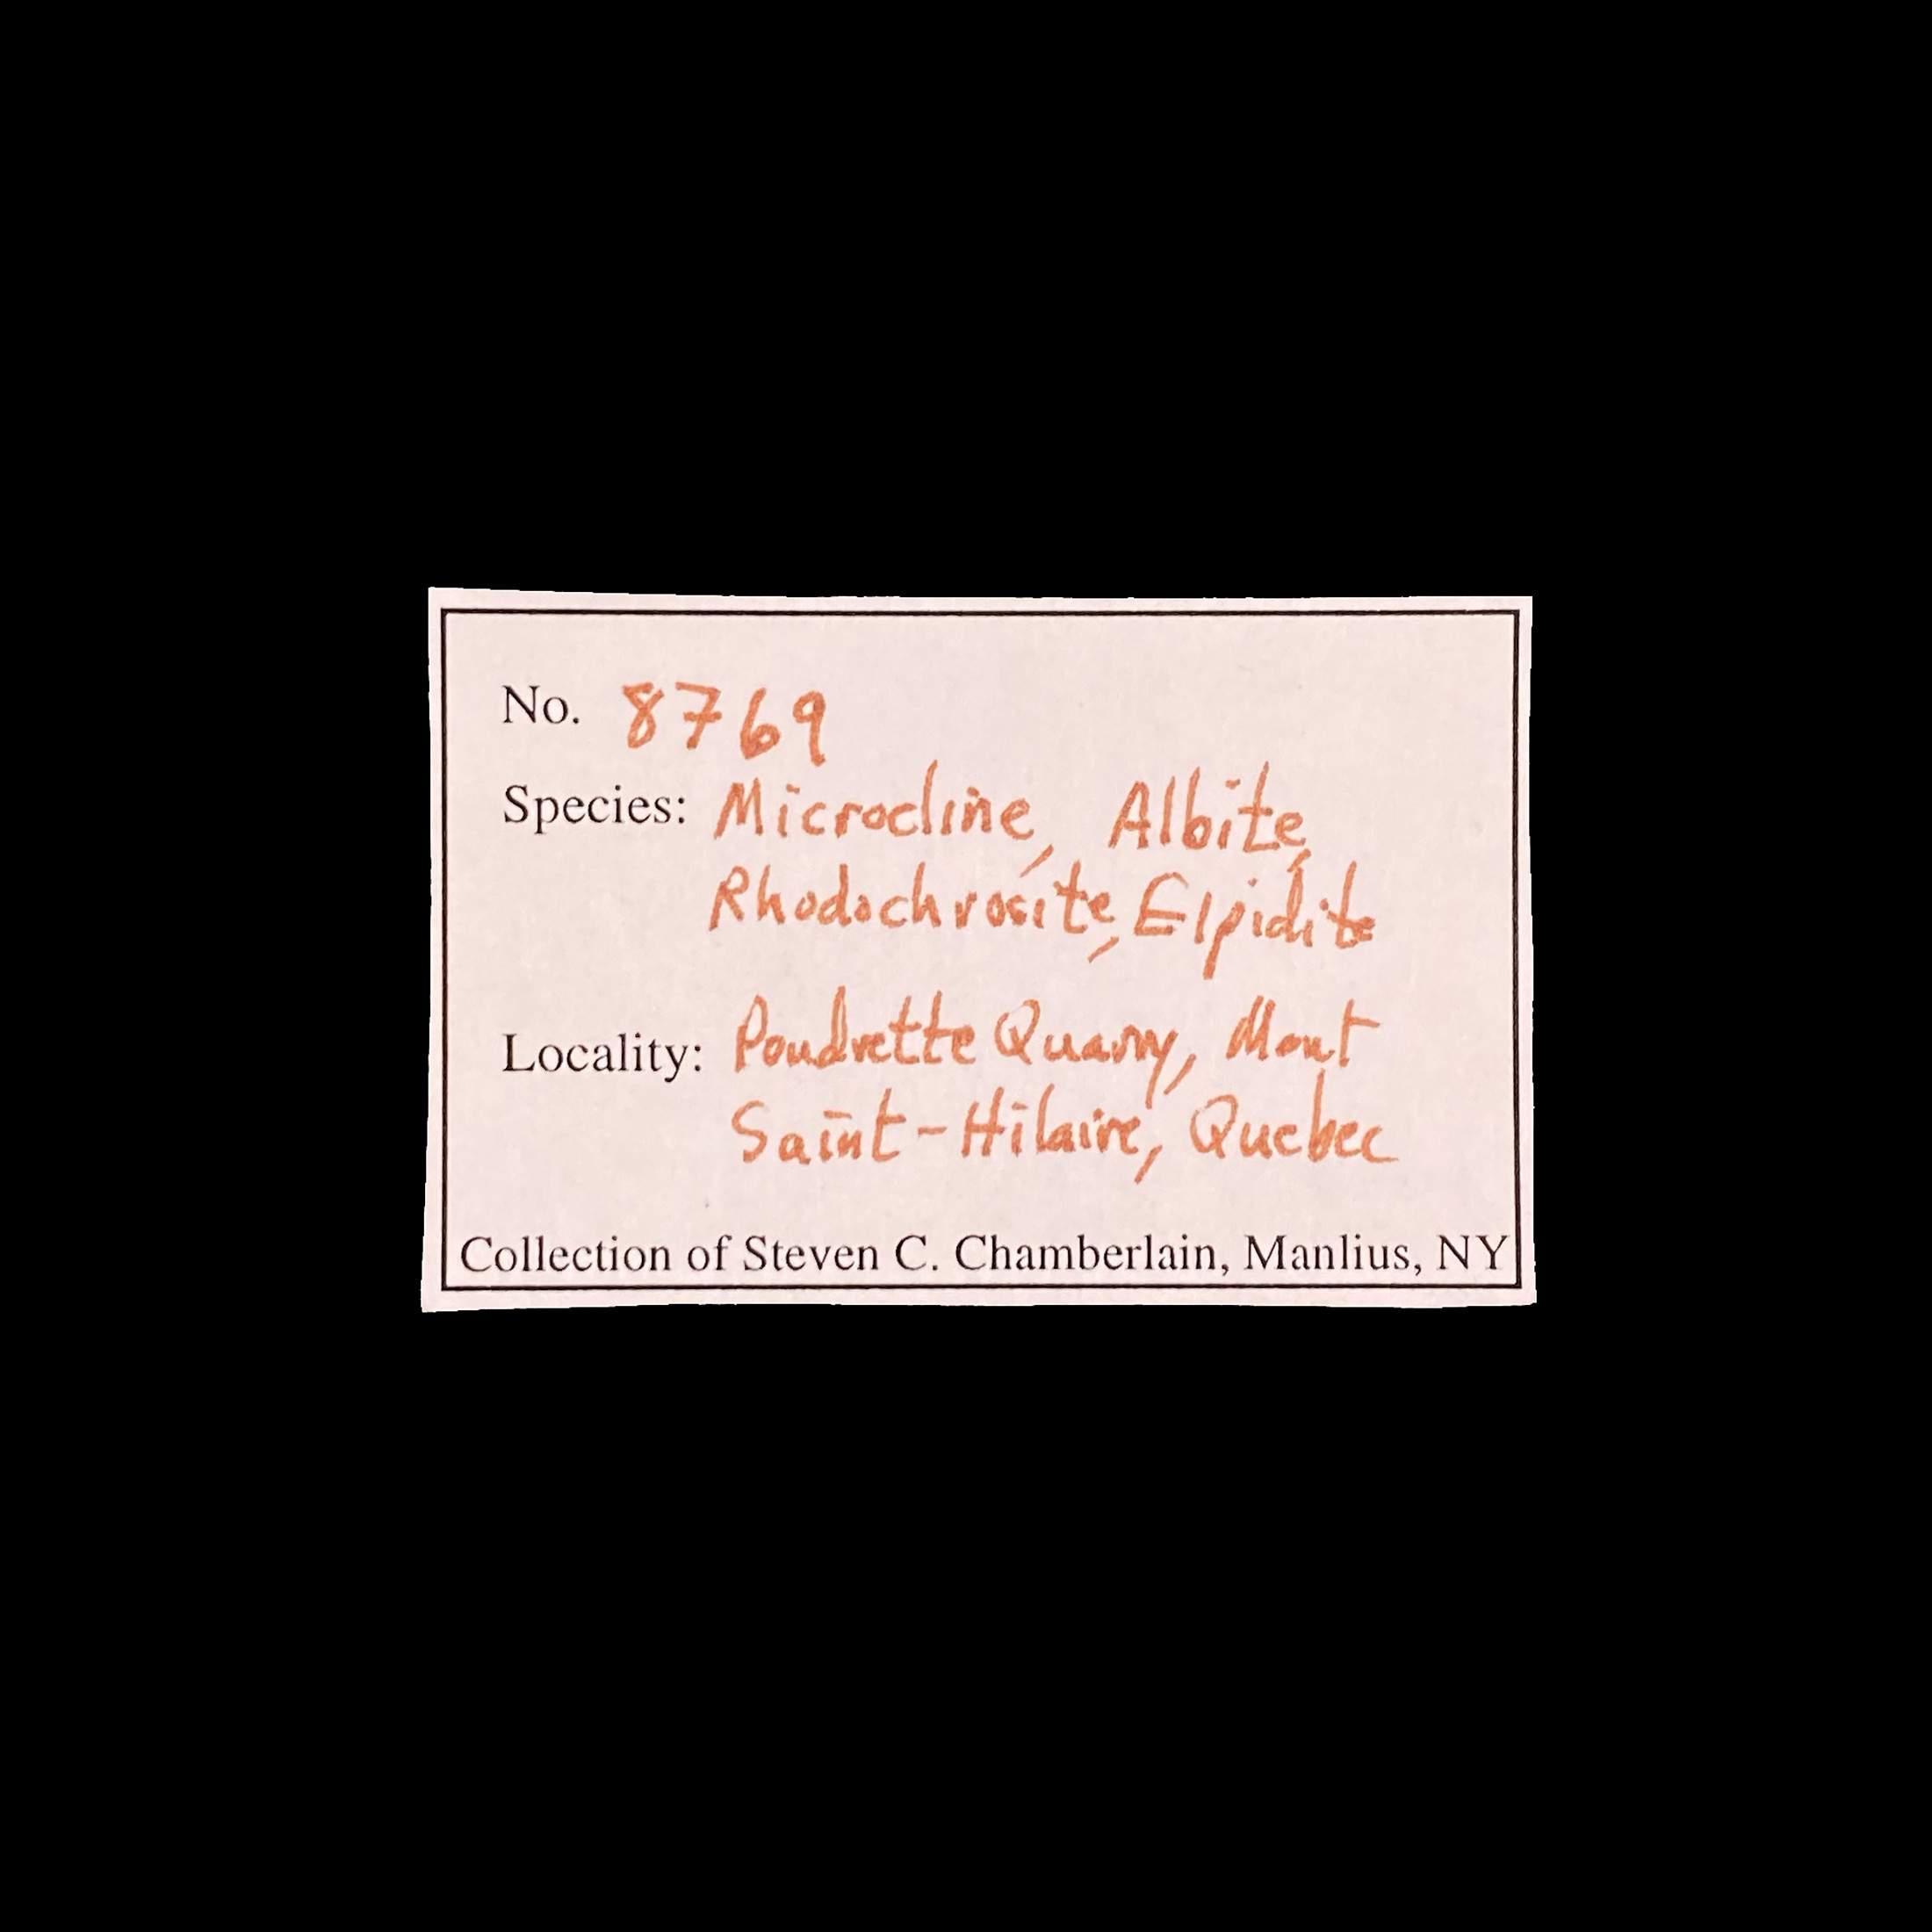 No. 8769
Species: Microcline, Albite,
Rhodochrosite, Elpidite
Locality: Poudrette Quarry, Mont
Saint-Hilaire, Quebec
Collection of Steven C. Chamberlain, Manlius, NY